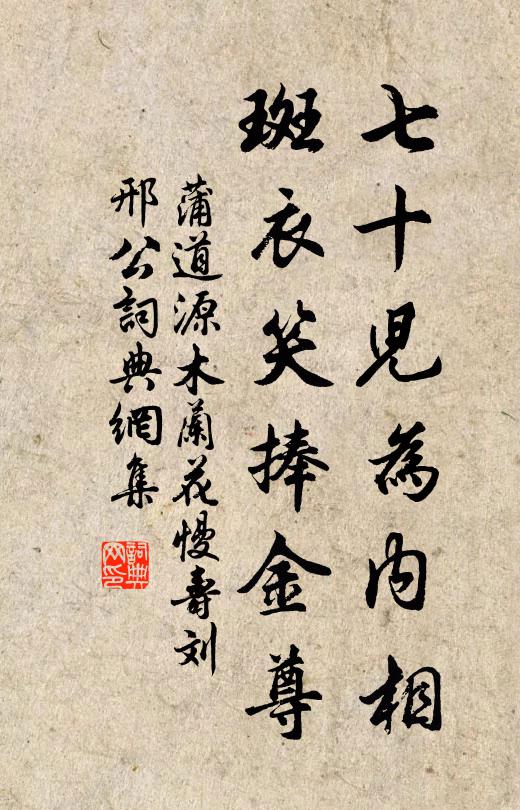 七十児為内相
斑衣笑捧金尊
蒲道源木蘭花慢壽刘
邢公詞典網集
詞典网印